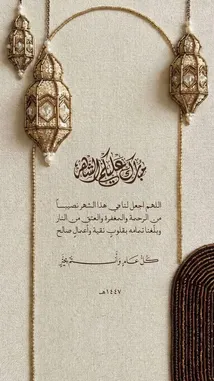 مبارك عليكم الشهر
اللهم اجعل لنا في هذا الشهر نصيباً
من الرحمة والمغفرة والعتق من النار
وبلغنا تمامه بقلوب تقية وأعمال صالح
كل عام وأنتم بخير
١٤٤٧هـ